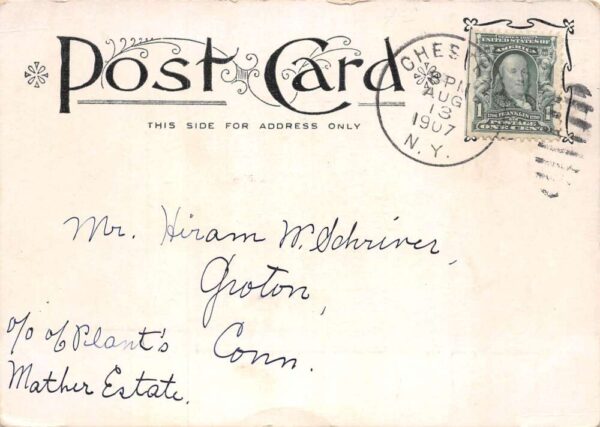 Post Card
THIS SIDE FOR ADDRESS ONLY
AUG
13
1907
N.Y.
UNITED STATES OF
AMERICA
1 FRANKLIN 1
POSTAGE
ONE CENT
Mr. Hiram W. Schriver,
Groton,
Conn.
c/o of Plant's
Mather Estate.